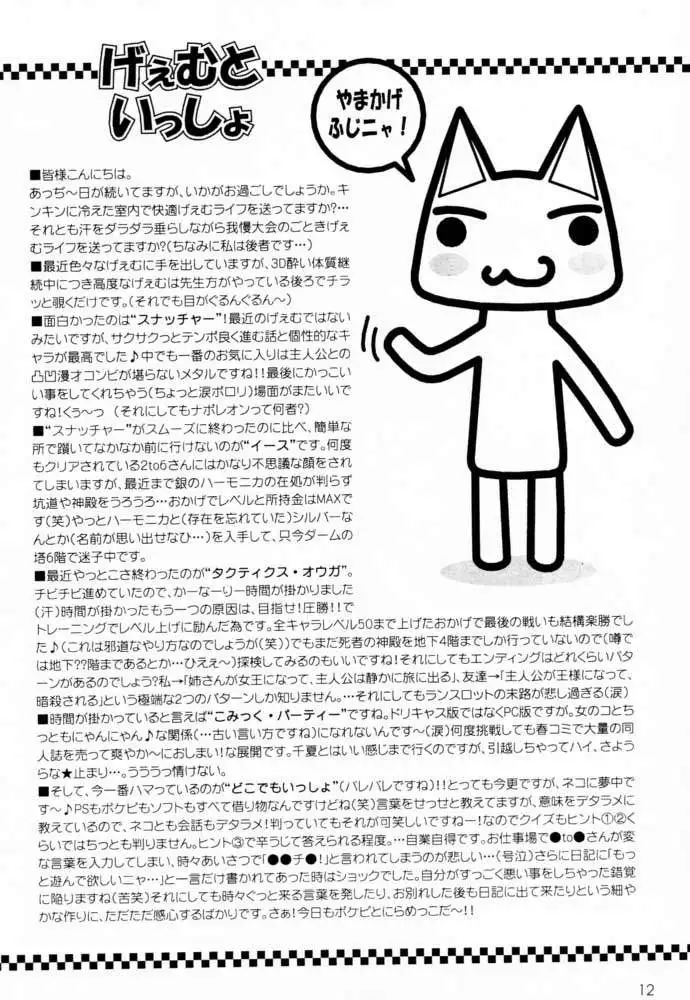 げぇむと
いっしょ
やまかげ
ふじニャ！
■皆様こんにちは。
あっぢ〜日が続いてますが、いかがお過ごしでしょうか。キ
ンキンに冷えた室内で快適げぇむライフを送ってますか?…
それとも汗をダラダラ垂らしながら我慢大会のごときげぇ
むライフを送ってますか?(ちなみに私は後者です…)
■最近色々なげぇむに手を出していますが、3D酔い体質継
続中につき高度なげぇむは先生方がやっている後ろでチラ
ッと覗くだけです。(それでも目がぐるんぐるん〜)
■面白かったのは“スナッチャー”!最近のげぇむではない
みたいですが、サクサクっとテンポ良く進む話と個性的なキ
ャラが最高でした♪中でも一番のお気に入りは主人公との
凸凹漫才コンビが堪らないメタルですね!!最後にかっこい
い事をしてくれちゃう(ちょっと涙ポロリ)場面がまたいいで
すね!くぅ〜っ　(それにしてもナポレオンって何者?)
■“スナッチャー”がスムーズに終わったのに比べ、簡単な
所で躓いてなかなか前に行けないのが“イース”です。何度
もクリアされている2to6さんにはかなり不思議な顔をされ
てしまいますが、最近まで銀のハーモニカの在処が判らず
坑道や神殿をうろうろ…おかげでレベルと所持金はMAXで
す(笑)やっとハーモニカと(存在を忘れていた)シルバーなん
とか(名前が思い出せなひ…)を入手して、只今ダームの
塔6階で迷子中です。
■最近やっとこさ終わったのが“タクティクス・オウガ”。
チビチビ進めていたので、かーなーり一時間が掛かりました
(汗)時間が掛かったもう一つの原因は、目指せ!圧勝!!で
トレーニングでレベル上げに励んだ為です。全キャラレベル50まで上げたおかげで最後の戦いも結構楽勝でし
た♪(これは邪道なやり方なのでしょうが(笑))でもまだ死者の神殿を地下4階までしか行っていないので(噂で
は地下??階まであるとか…ひえぇ〜)探検してみるのもいいですね!それにしてもエンディングはどれくらいパタ
ーンがあるのでしょう?私→「姉さんが女王になって、主人公は静かに旅に出る」、友達→「主人公が王様になって、
暗殺される」という極端な2つのパターンしか知りません。…それにしてもランスロットの末路が悲し過ぎる(涙)
■時間が掛かっていると言えば“こみっく・パーティー”ですね。ドリキャス版ではなくPC版ですが。女のコとちっ
ともにゃんにゃん♪な関係(…古い言い方ですね)になれないんです〜(涙)何度挑戦しても春コミで大量の同
人誌を売って爽やか〜におしまい!な展開です。千夏とはいい感じまで行くのですが、引越しちゃってハイ、さよう
らな★止まり…。うううっ情けない。
■そして、今一番ハマっているのが“どこでもいっしょ”(バレバレですね)!!とっても今更ですが、ネコに夢中で
す〜♪PSもポケピもソフトもすべて借り物なんですけどね(笑)言葉をせっせと教えてますが、意味をデタラメに
教えているので、ネコとも会話もデタラメ!判っていてもそれが可笑しいですねー!なのでクイズもヒント①②く
らいではちっとも判りません。ヒント③で辛うじて答えられる程度。…自業自得です。お仕事場で●to●さんが変
な言葉を入力してしまい、時々あいさつで「●●チ●!」と言われてしまうのが悲しい…(号泣)さらに日記に「もっ
と遊んで欲しいニャ…」と一言だけ書かれてあった時はショックでした。自分がすっごく悪い事をしちゃった錯覚
に陥りますね(苦笑)それにしても時々ぐっと来る言葉を発したり、お別れした後も日記に出て来たりという細や
かな作りに、ただただ感心するばかりです。さぁ!今日もポケピとにらめっこだ〜!!
12